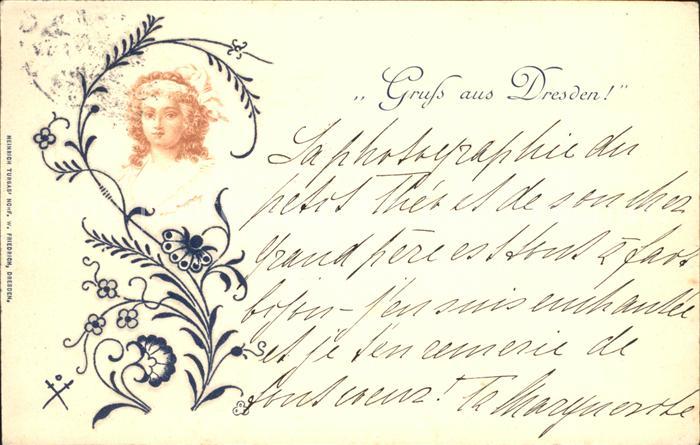 „Gruß aus Dresden!"
La photographie du
petit Théo et de son cher
grand père est tout à fait
bijou – j'en suis enchantée
et je t'en remercie de
tout coeur! Ta Marguerite
HEINRICH TURGAS' NCHF. W. FRIEDRICH, DRESDEN.